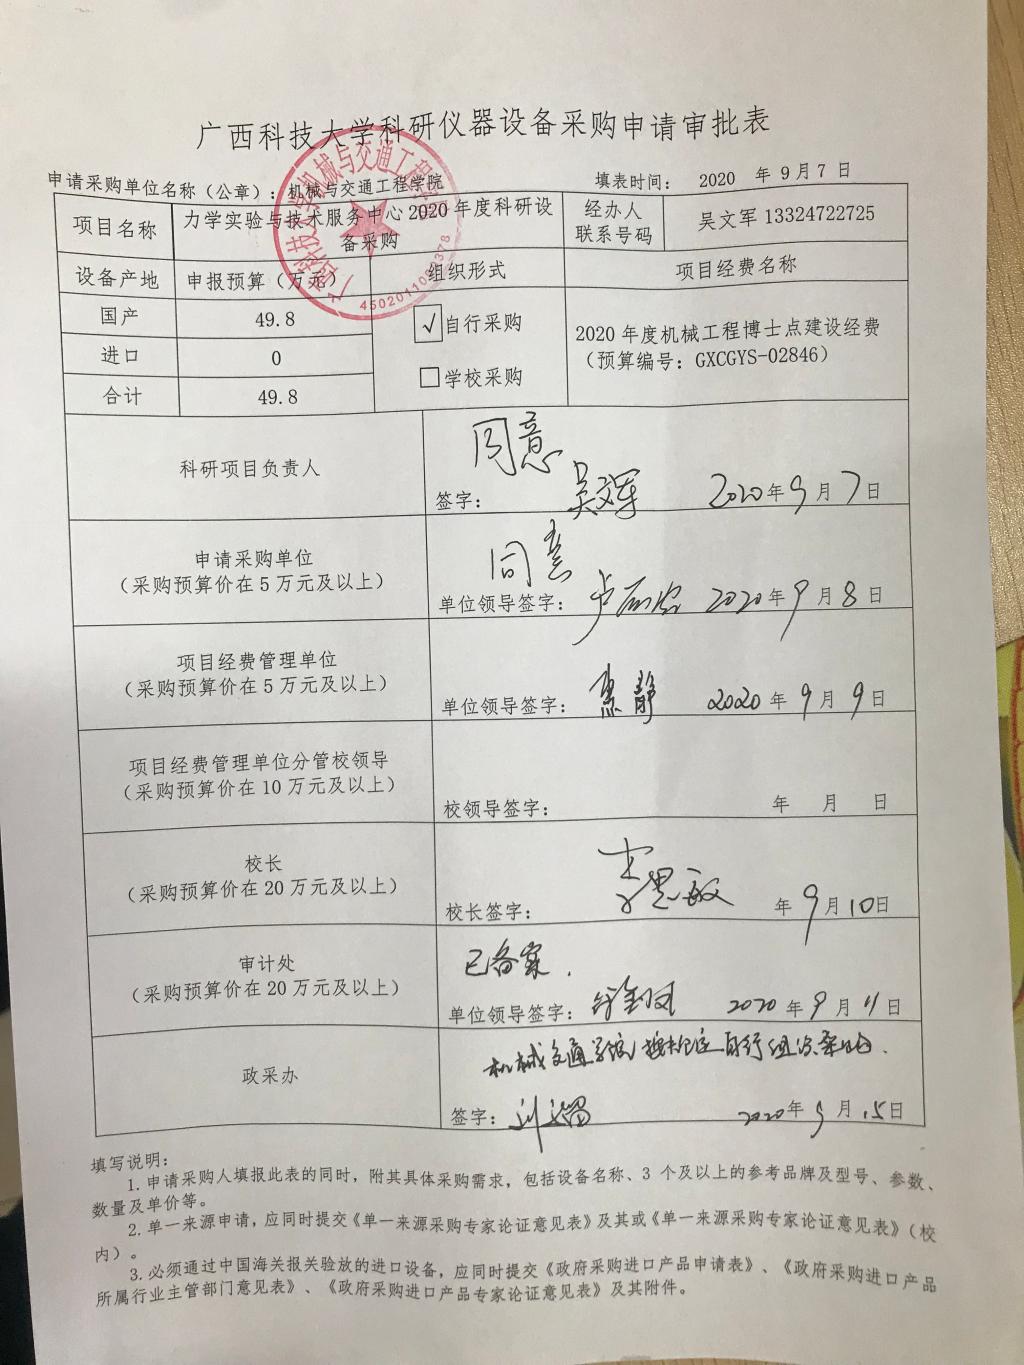 广西科技大学科研仪器设备采购申请审批表
申请采购单位名称（公章）：机械与交通工程学院
填表时间： 2020 年 9 月 7 日
项目名称
力学实验与技术服务中心 2020 年度科研设
备采购
经办人
联系号码
吴文军 13324722725
设备产地
申报预算（万元）
组织形式
项目经费名称
国产
49.8
√自行采购
2020 年度机械工程博士点建设经费
（预算编号：GXCGYS-02846）
进口
0
□学校采购
合计
49.8
科研项目负责人
同意
签字： 吴文军 2020年9月7日
申请采购单位
（采购预算价在 5 万元及以上）
同意
单位领导签字： 2020年9月8日
项目经费管理单位
（采购预算价在 5 万元及以上）
单位领导签字： 静 2020年9月9日
项目经费管理单位分管校领导
（采购预算价在 10 万元及以上）
校领导签字： 年 月 日
校长
（采购预算价在 20 万元及以上）
校长签字： 李思敏 年9月10日
审计处
（采购预算价在 20 万元及以上）
已备案.
单位领导签字： 2020年9月11日
政采办
机械交通学院按规定自行组织采购.
签字： 2020年9月15日
填写说明：
1. 申请采购人填报此表的同时，附其具体采购需求，包括设备名称、3 个及以上的参考品牌及型号、参数、
数量及单价等。
2. 单一来源申请，应同时提交《单一来源采购专家论证意见表》及其或《单一来源采购专家论证意见表》（校
内）。
3. 必须通过中国海关报关验放的进口设备，应同时提交《政府采购进口产品申请表》、《政府采购进口产品
所属行业主管部门意见表》、《政府采购进口产品专家论证意见表》及其附件。